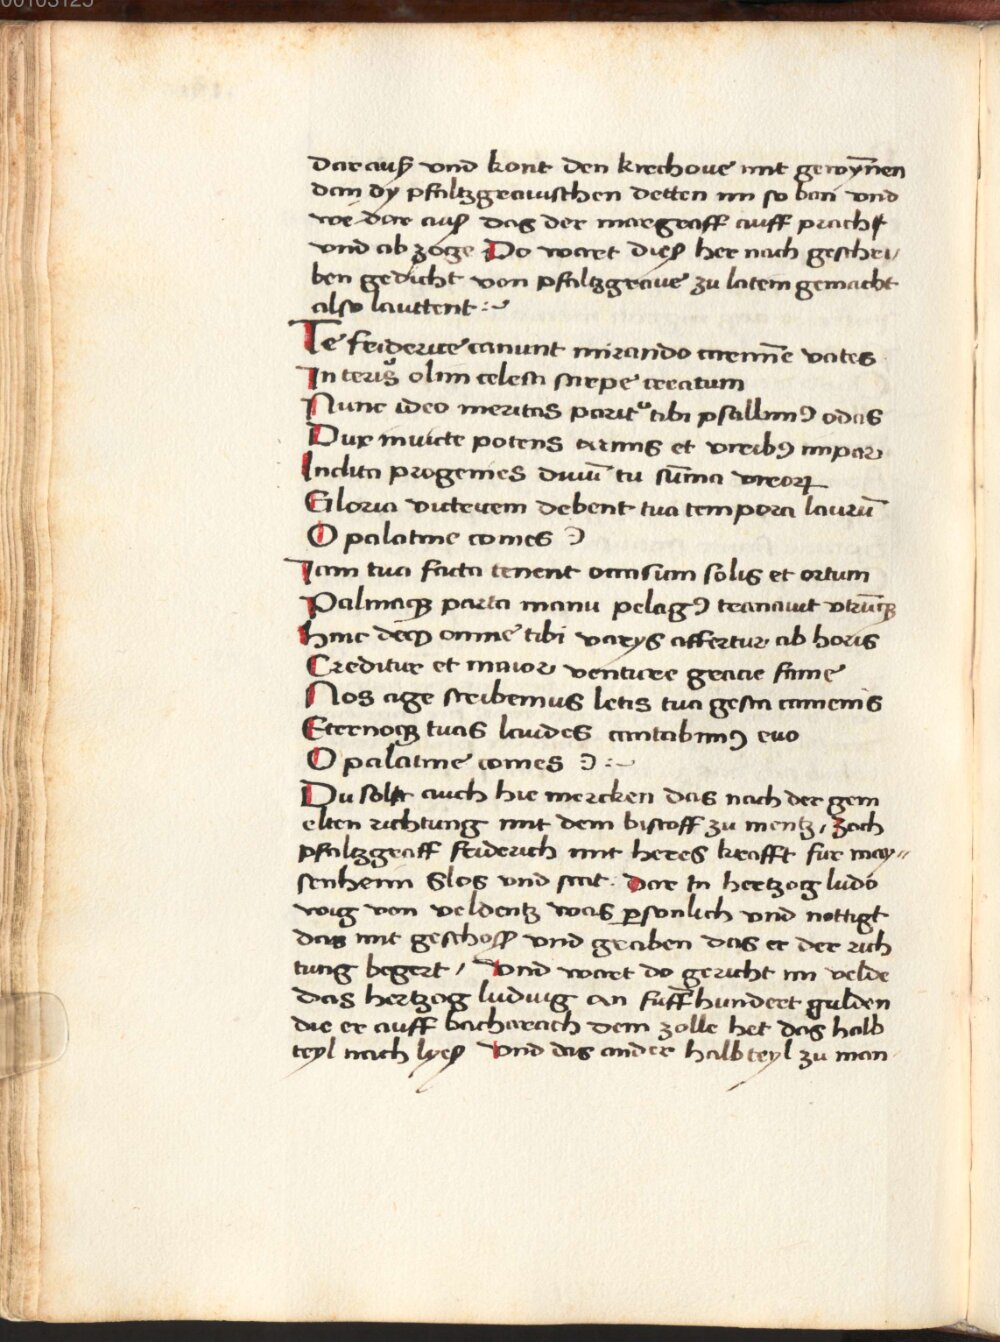 00103125
dar auß vnd kont den kirchoue nit gewỹnen
dan dy pfaltzgrauischen detten im so ban vnd
we dar auß das der margraff auff prach
vnd ab zoge Do wart dieß her nach geschri/
ben gedicht von pfaltzgraue zu latein gemacht
also lauttent :~
Te friderice canunt mirando carmīe vates
In teris olim celesti stirpe creatum
Nunc ideo meritas parit͛ tibi psallimꝰ odas
Dux inuicte potens armis et viribꝰ impar
Inclita progenies diuū tu sūma viroꝝ
Gloria victricem debent tua tempora laurū
O palatine comes
Iam tua facta tenent occasum solis et ortum
Palmaqꝫ parta manu pelagꝰ tranauit vtrūqꝫ
hinc decꝰ omne tibi varijs affertur ab horis
Creditur et maior venture gracie fame
Nos age scribemus letis tua gesta camenis
Eternoqꝫ tuas laudes cantabimꝰ euo
O palatine comes :~
Du solt auch hie mercken das nach der gem
elten richtung mit dem bistoff zu mentz, zoch
pfaltzgraff friderich mit heres krafft fur may〃
senheim Slos vnd stat. Dar In hertzog ludo
wig von veldentz was ꝑsonlich vnd nottigt
das mit geschoß vnd graben das er der rich
tung begert / Vnd wart do gericht im velde
das hertzog ludwig an funff hundert gulden
die er auff bacharach dem zolle het das halb
teyl nach lyeß Vnd das ander halb teyl zu man